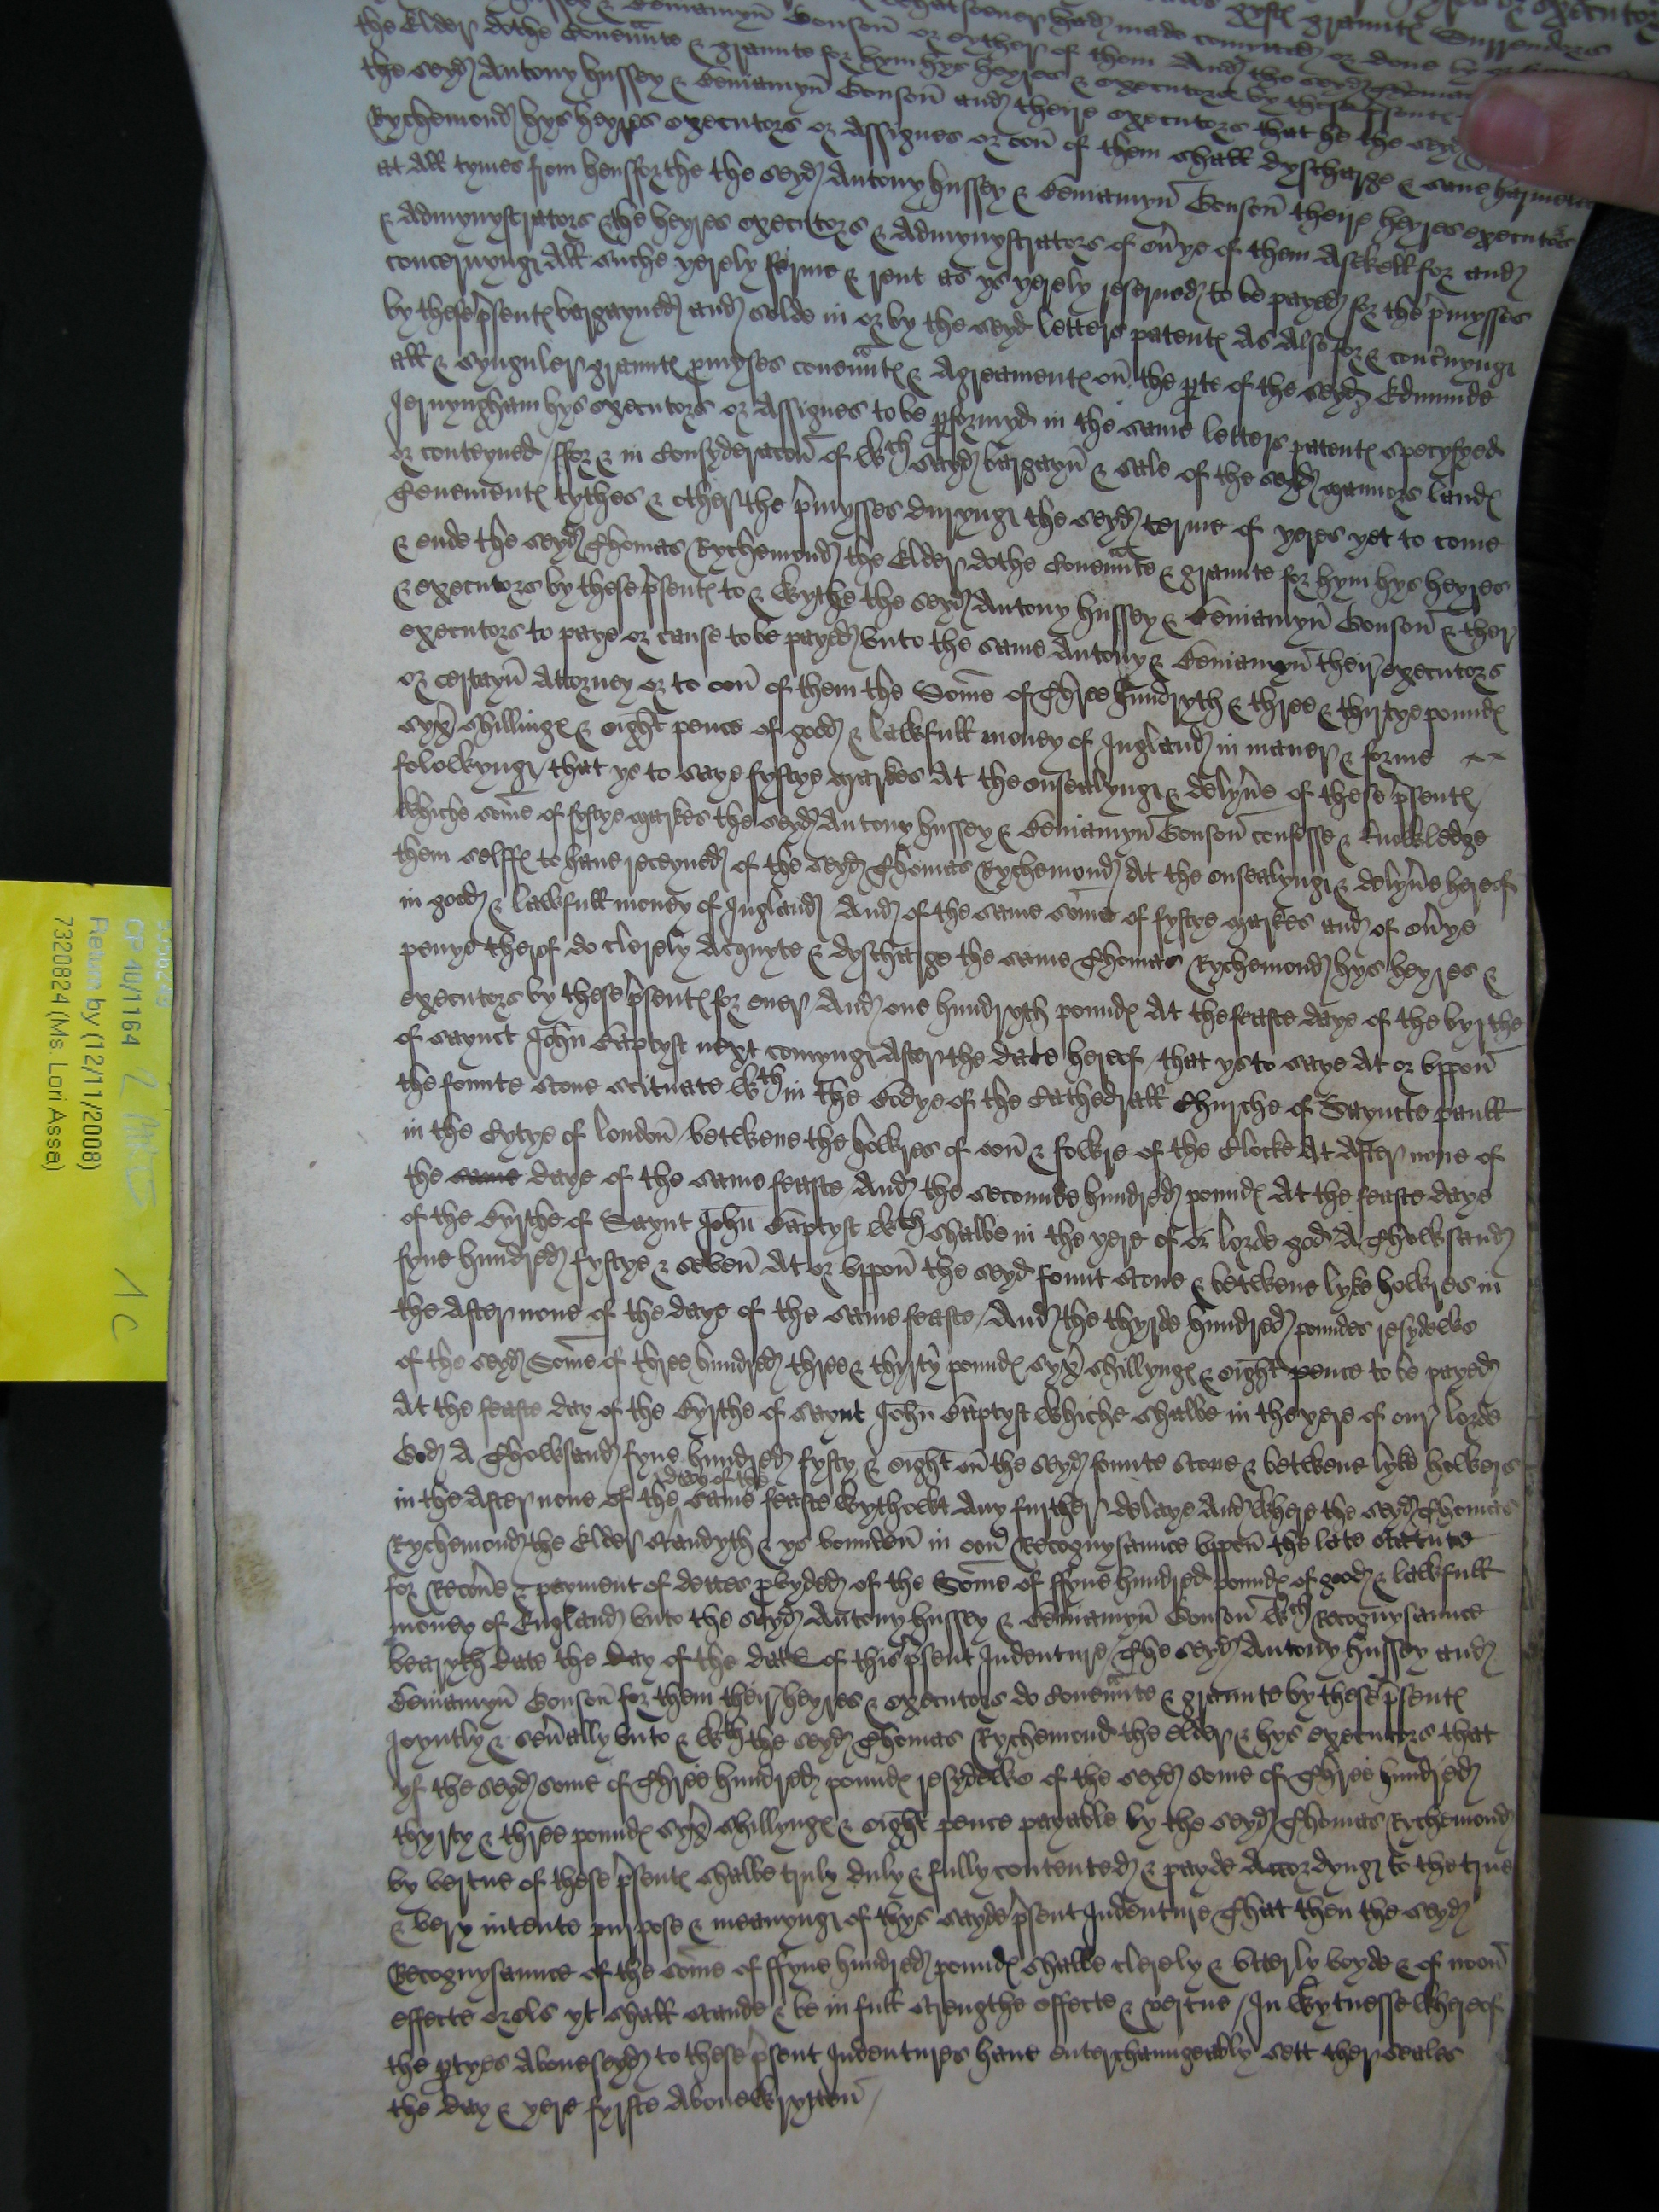 gyftes grauntes Surrenders
& Beniamyn Gonson or eyther of them made comytted or done by
the Elder dothe Couenante & graunte for hym hys heyres & executors by these presentes
the seyd Antony hussey & Beniamyn Gonson and theire executors that he the seyd
Rychemond hys heyres executors or Assignes or oon of them shall dyscharge & saue harmeles
at All tymes from hensforthe the seyd Antony hussey & Beniamyn Gonson theire heyres executors
& Admynystrators & the heyres executors & Admynystrators of eu'ye of them Aswell for and
concernyng All suche yerely ferme & rent as ys yerely reserued to be payed for the p'mysses
by these p'sentes bargayned and solde in or by the seyd letters patentes As Also for & conc'nyng
all & synguler grauntes p'myses couenntes & Agreamentes on the p'te of the seyd Edmunde
Jernyngham hys executors or Assignes to be p'formyd in the same letters patentes specyfyed
or conteyned / ffor & in Consyderacon of wch sayd bargayn & sale of the seyd mannors landes
Tenementes tythes & other the p'mysses duryng the seyd terme of yeres yet to come
& ende the seyd Thomas Rychemond the Elder dothe Couennte & graunte for hym hys heyres
& executors by these p'sentes to & wythe the seyd Antony hussey & Beniamyn Gonson & ther
executors to paye or cause to be payed vnto the same Antony & Beniamyn their executors
or certayn Attorney or to oon of them the Some of Three hundryth & three & thirtye poundes
syx shillinges & eight pence of good & lawfull money of Ingland in maner & forme
folowyng / that ys to saye fyftye markes At the ensealyng & delyu'e of these p'sentes /
whiche some of fyftye markes the seyd Antony hussey & Beniamyn Gonson confesse & knowledge
them selffes to haue receyued of the seyd Thomas Rychemond At the ensealyng & delyu'e hereof
in good & lawfull money of Ingland And of the same some of fyftye markes and of eu'ye
penye therof do clerely Acquyte & dyscharge the same Thomas Rychemond hys heyres &
executors by these p'sentes for euer And one hundryth poundes At the feaste daye of the byrthe
of saynct John Baptyst next comyng After the date hereof / that ys to saye At or vppon
the founte stone scituate wthin the Bodye of the Cathedrall Churche of Sayncte paull
in the Cytye of london / betwene the howres of oon & fowre of the Clocke At After none of
the same daye of the same feaste / And the secounde hundred poundes At the feaste daye
of the Byrthe of Saynt John Baptyst wch shalbe in the yere of or lorde god A Thowsand
fyue hundred fyftye & seven At or vppon the seyd fount stone & betwene lyke howres in
the After none of the daye of the same feaste / And the thyrde hundred poundes resydewe
of the seyd Some of three hundred three & thyrty poundes syx shillynges & eight pence to be payed
At the feaste day of the Byrthe of saynt John Baptyst whiche shalbe in the yere of our lorde
God A Thowsand fyue hundred fyfty & eight on the seyd founte stone & betwene lyke howers
in the After none of the day of the same feaste wythowt Any further delaye And where the seyd Thomas
Rychemond the Elder standyth & ys bounden in oon Recognysaunce vppon the late statute
for Recou'e & payment of dettes p'vyded of the Some of ffyue hundred poundes of good & lawfull
money of England vnto the seyd Antony hussey & Beniamyn Gonson wch Recognysaunce
bearyth date the day of the date of this p'sent Indenture / The seyd Antony hussey and
Beniamyn Gonson for them their heyres & executors do Couennte & graunte by these p'sentes
Joyntly & seu'ally vnto & wth the seyd Thomas Rychemond the elder & hys executors that
yf the seyd some of Three hundred poundes resydewe of the seyd some of Three hundred
thyrty & three poundes syx shillynges & eight pence payable by the seyd Thomas Rychemond
by vertue of these p'sentes shalbe truly duly & fully contented & payde Accordyng to the true
& very intente purpose & meanyng of thys sayde p'sent Indenture That then the seyd
Recognysaunce of the some of ffyue hundred poundes shalbe clerely & vtterly voyde & of noon
effecte or els yt shall stande & be in full strengthe effecte & vertue / In wytnesse whereof
the p'tyes Aboueseyd to these p'sent Indentures haue enterchaungeably sett ther seales
the day & yere fyrste Abouewrytten /
CP 40/1164
Return by (12/11/2008)
7320824 (Ms. Lori Asse)
1 C